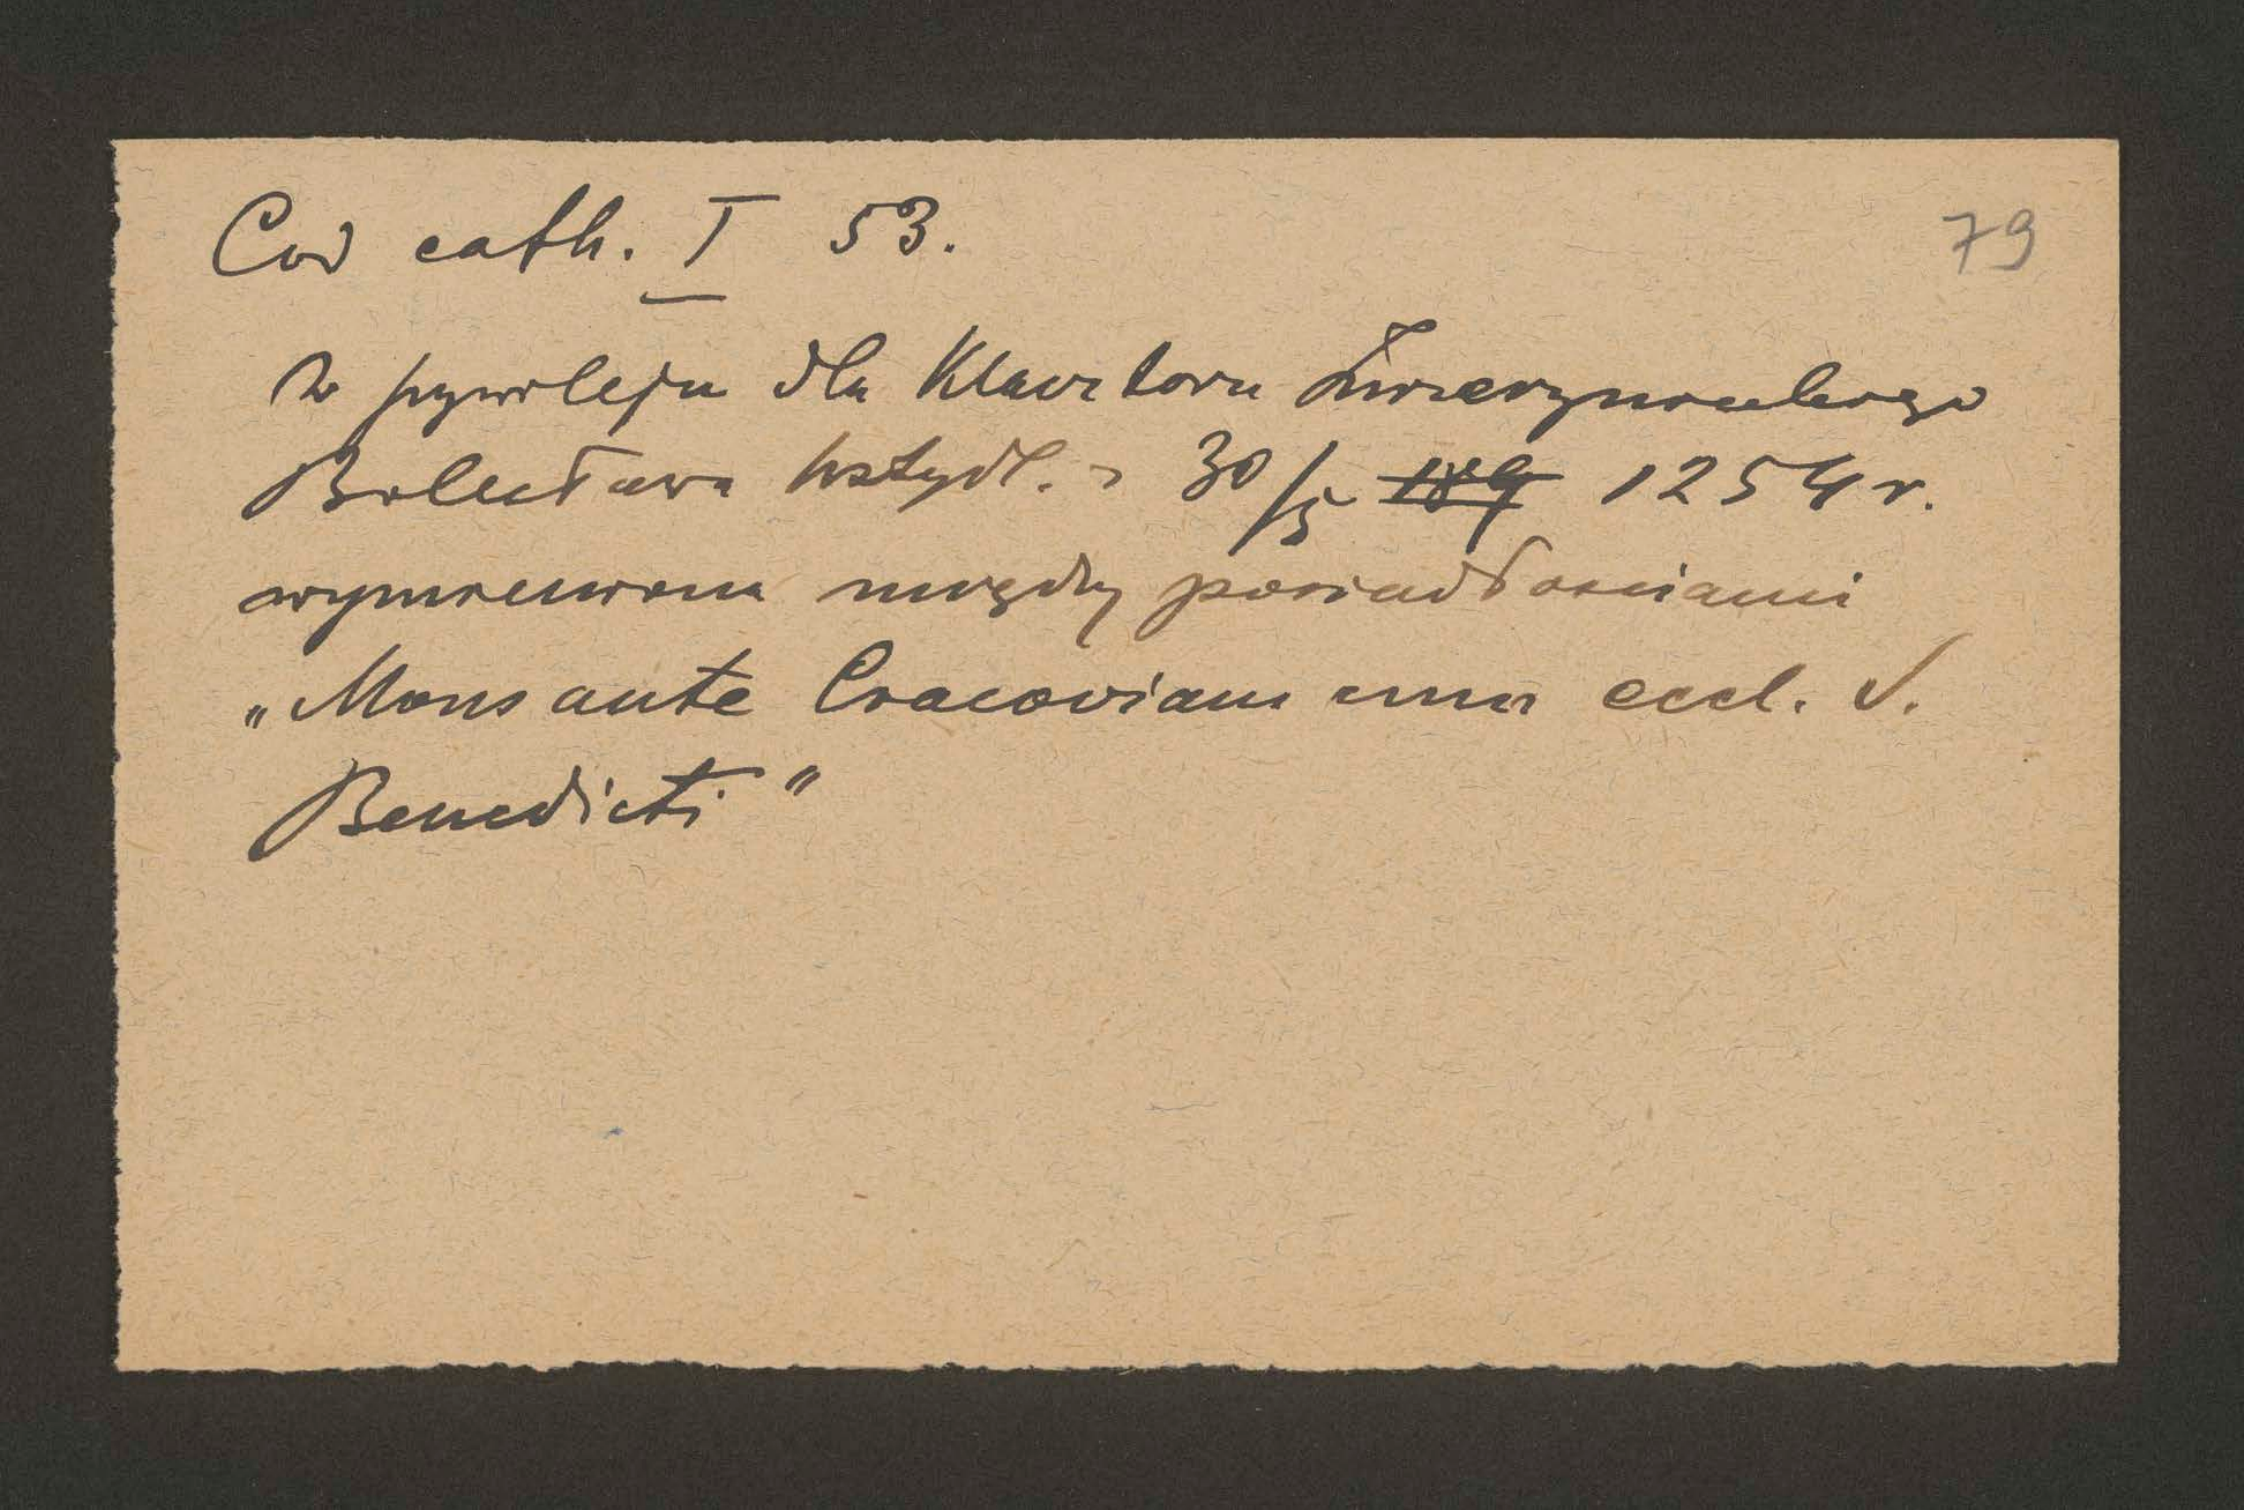 Cod cath. I 53.
79
W przywileju dla Klasztoru Zwierzynieckiego
Bolesława Wstydl. z 30/5 1254 r.
wymieniona między posiadłościami
„Mons ante Cracoviam cum eccl. S.
Benedicti"